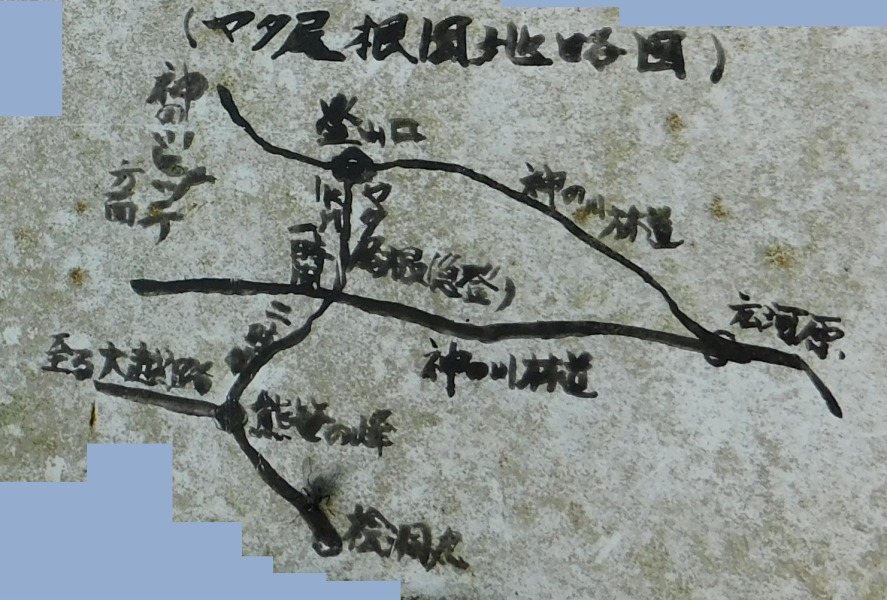 (ヤタ尾根図地略図)
神の川ヒュッテ
方面
登山口
神の川林道
ヤタ尾根(急登)
一時間
広河原
神の川林道
至る大越路
熊笹の峰
桧洞丸